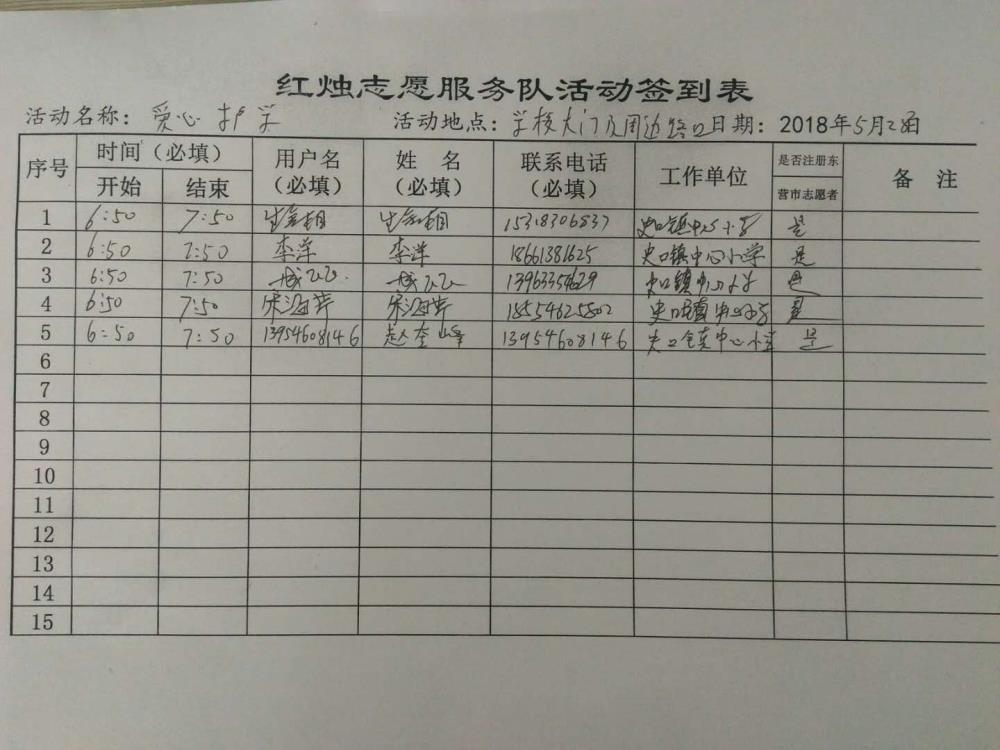 红烛志愿服务队活动签到表
活动名称：爱心护学 活动地点：学校大门及周边路口 日期：2018年5月2日
序号 时间（必填） 用户名（必填） 姓名（必填） 联系电话（必填） 工作单位 是否注册东营市志愿者 备注
开始 结束
1 6:50 7:50 15318306837 史口镇中心小学 是
2 6:50 7:50 李洋 李洋 18661381625 史口镇中心小学 是
3 6:50 7:50 史口镇中心小学 是
4 6:50 7:50 18554625802 史口镇中心小学 是
5 6:50 7:50 13954608146 赵奎峰 13954608146 史口镇中心小学 是
6
7
8
9
10
11
12
13
14
15